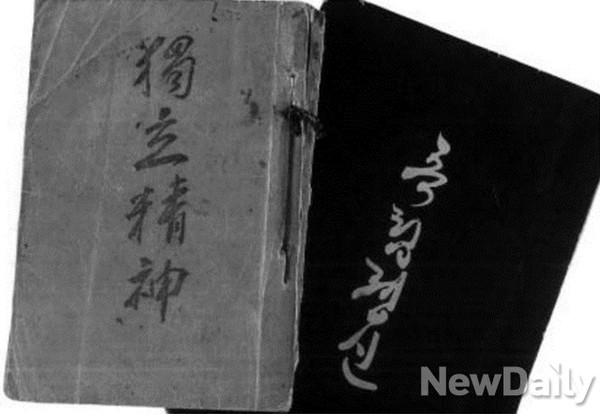 獨立精神
독립정신
NewDaily